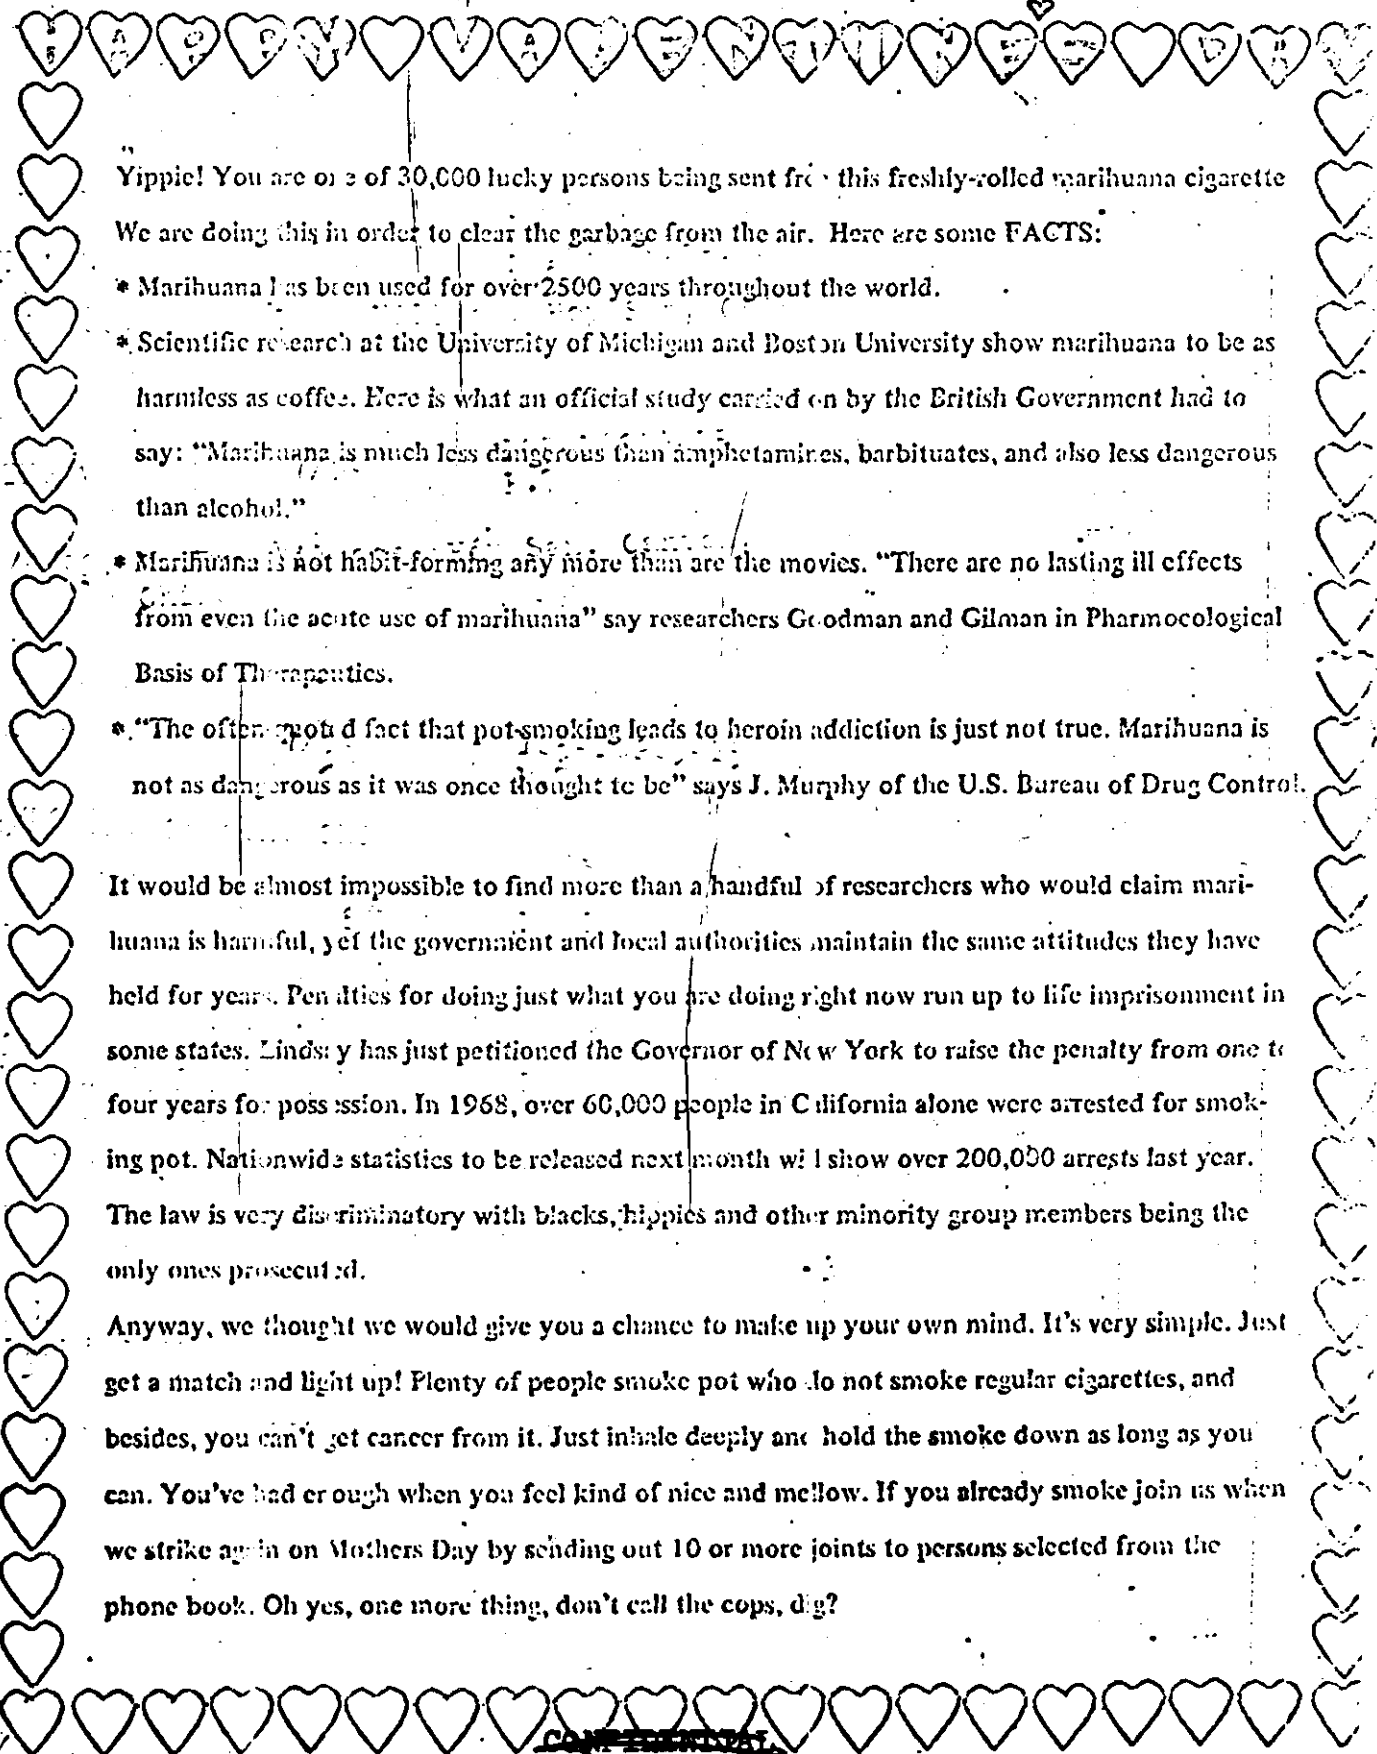 HAPPY VALENTINES DAY
Yippie! You are one of 30,000 lucky persons being sent free this freshly-rolled marihuana cigarette
We are doing this in order to clear the garbage from the air. Here are some FACTS:
* Marihuana has been used for over 2500 years throughout the world.
* Scientific research at the University of Michigan and Boston University show marihuana to be as
harmless as coffee. Here is what an official study carried on by the British Government had to
say: “Marihuana is much less dangerous than amphetamines, barbituates, and also less dangerous
than alcohol.”
* Marihuana is not habit-forming any more than are the movies. “There are no lasting ill effects
from even the acute use of marihuana” say researchers Goodman and Gilman in Pharmocological
Basis of Therapeutics.
* “The often quoted fact that pot-smoking leads to heroin addiction is just not true. Marihuana is
not as dangerous as it was once thought to be” says J. Murphy of the U.S. Bureau of Drug Control.
It would be almost impossible to find more than a handful of researchers who would claim mari-
huana is harmful, yet the government and local authorities maintain the same attitudes they have
held for years. Penalties for doing just what you are doing right now run up to life imprisonment in
some states. Lindsay has just petitioned the Governor of New York to raise the penalty from one to
four years for possession. In 1968, over 60,000 people in California alone were arrested for smok-
ing pot. Nationwide statistics to be released next month will show over 200,000 arrests last year.
The law is very discriminatory with blacks, hippies and other minority group members being the
only ones prosecuted.
Anyway, we thought we would give you a chance to make up your own mind. It's very simple. Just
get a match and light up! Plenty of people smoke pot who do not smoke regular cigarettes, and
besides, you can't get cancer from it. Just inhale deeply and hold the smoke down as long as you
can. You've had enough when you feel kind of nice and mellow. If you already smoke join us when
we strike again on Mothers Day by sending out 10 or more joints to persons selected from the
phone book. Oh yes, one more thing, don't call the cops, dig?
CONFIDENTIAL